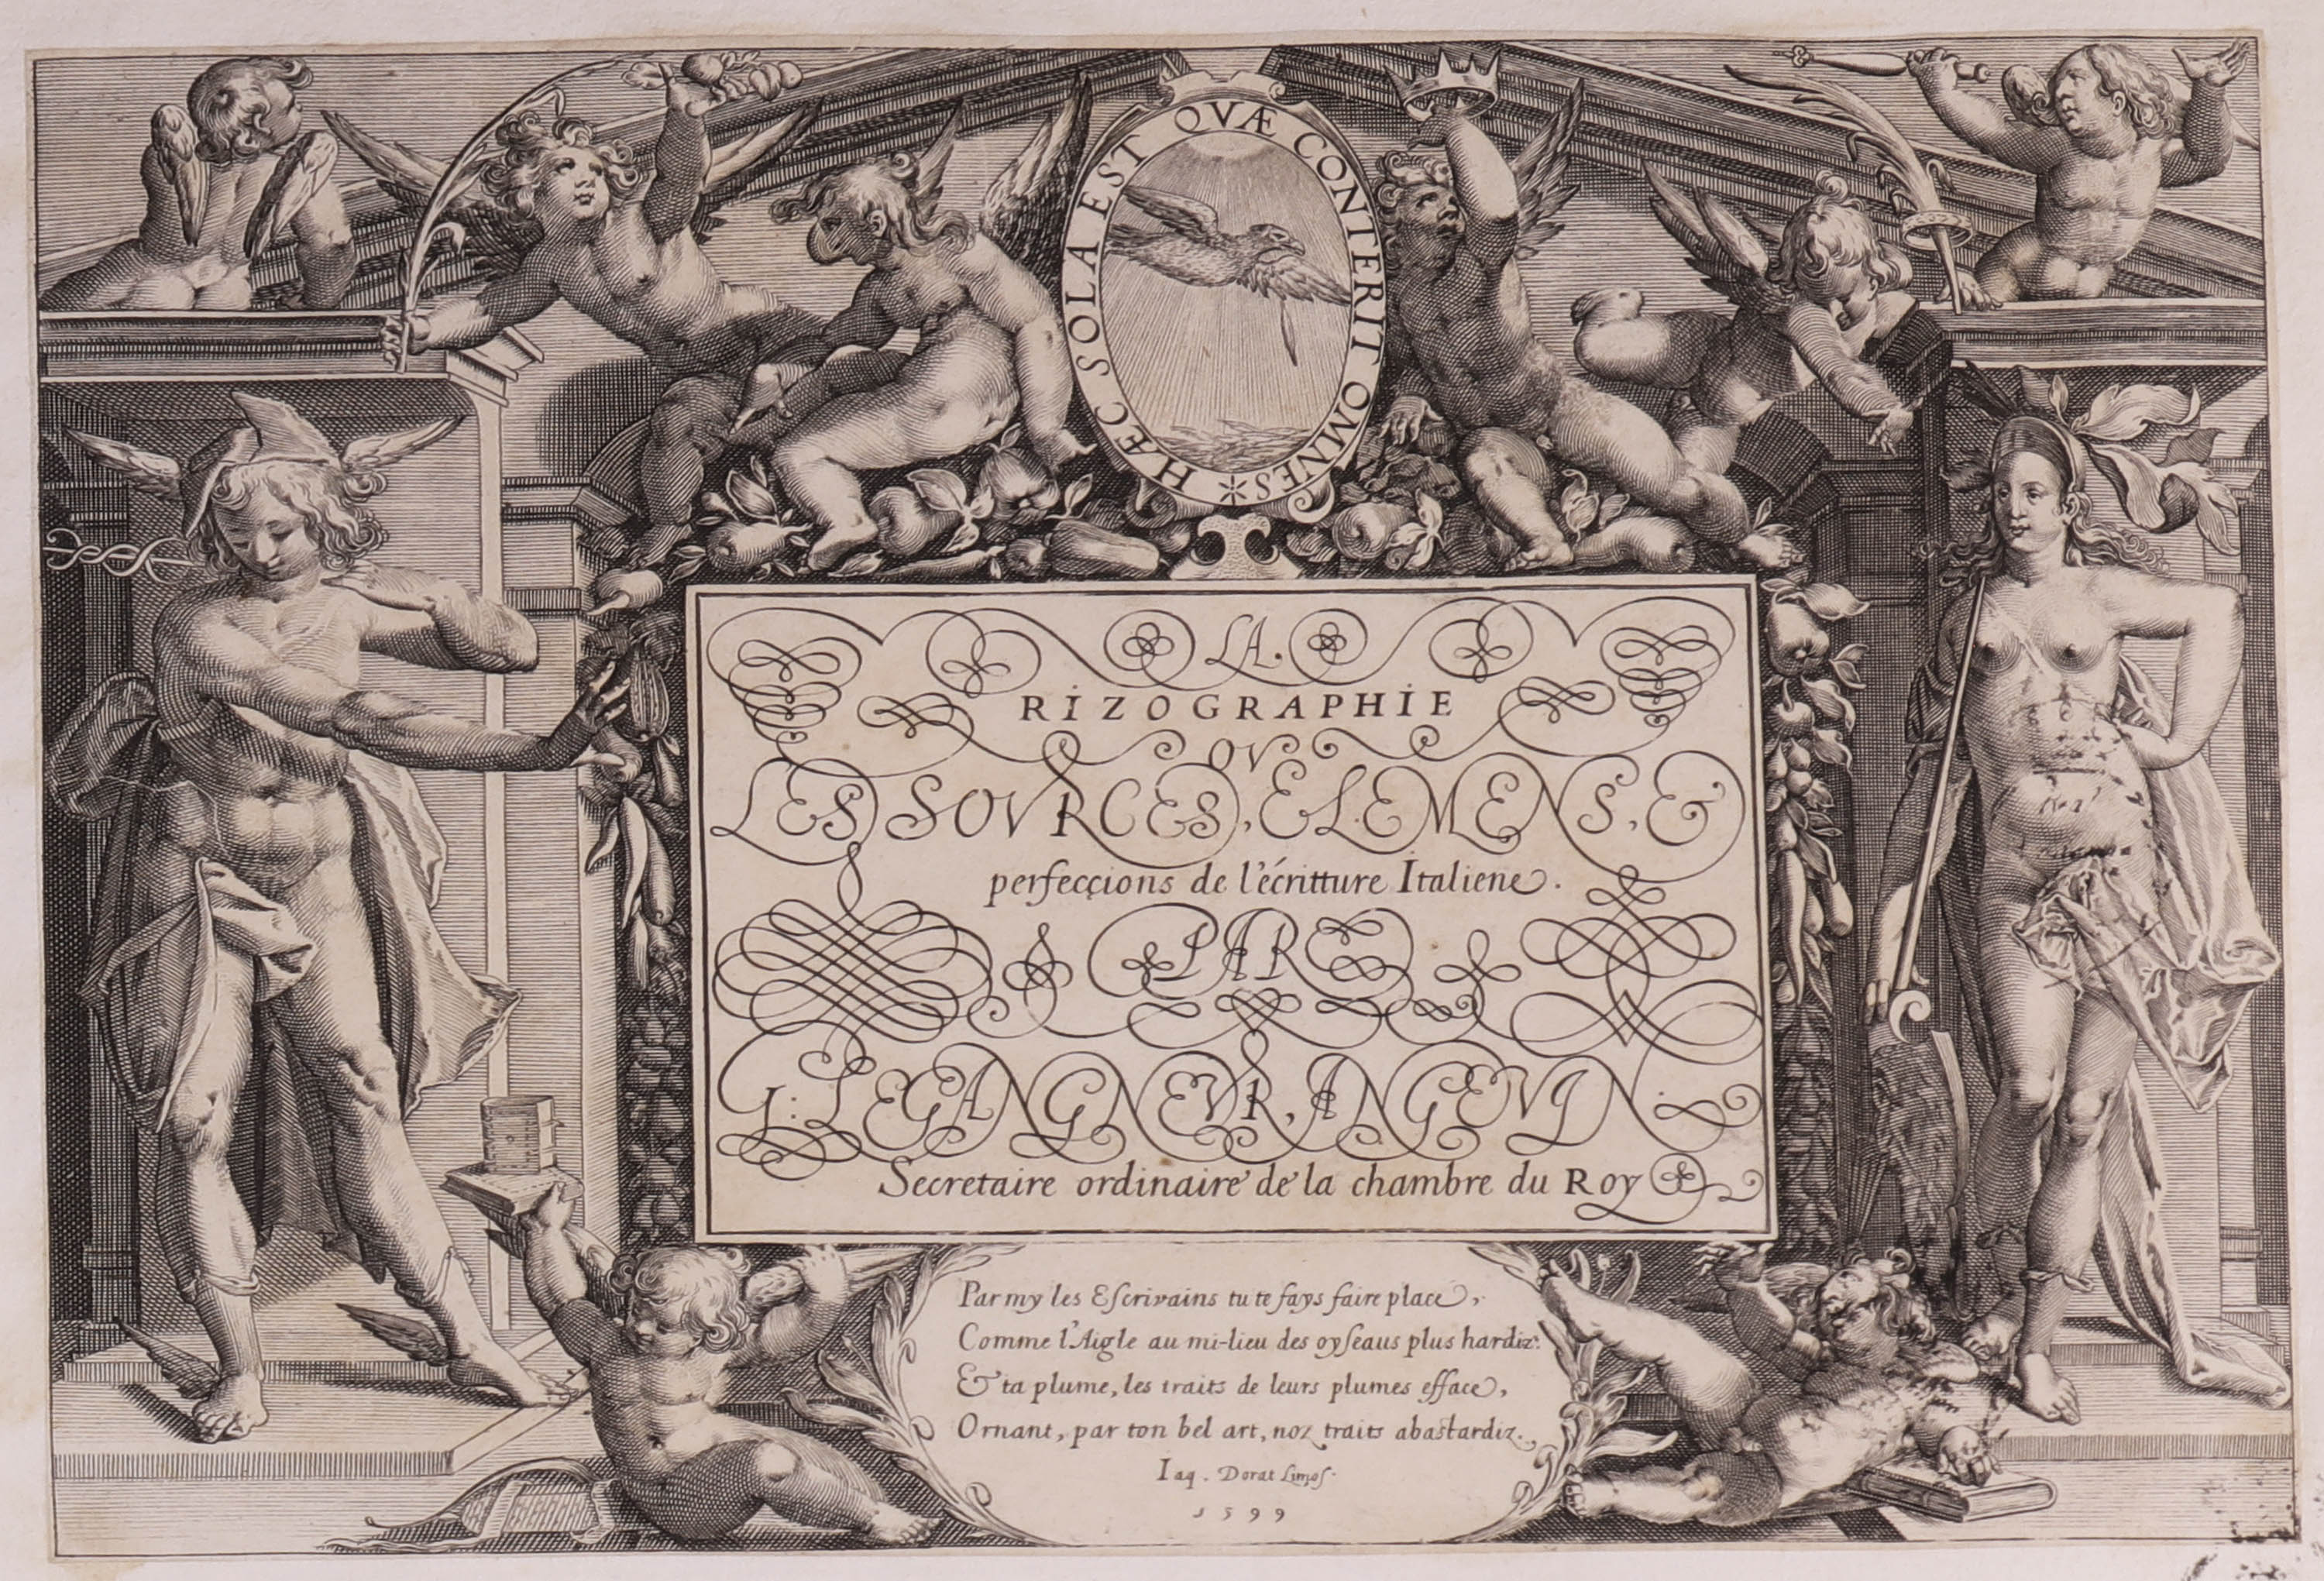 HÆC SOLA EST QVÆ CONTERIT OMNES *
LA.
RİZOGRAPHİE
OV
LES SOVRCES, ELEMENS, &
perfecçions de l'écritture İtaliene.
PAR
J: LEGANGNEVR, ANGEVJN.
Secretaire ordinaire de la chambre du Roy
Parmy les Eſcrivains tu te fays faire place,
Comme l'Aigle au mi-lieu des oyſeaus plus hardiz:
& ta plume, les traits de leurs plumes efface,
Ornant, par ton bel art, noz traits abastardiz.
Iaq. Dorat Limoſ.
1599